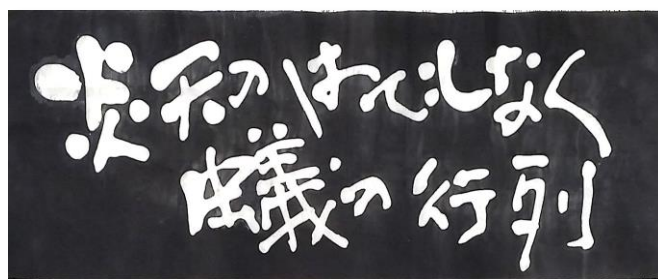 炎天のはてしなく
蟻の行列